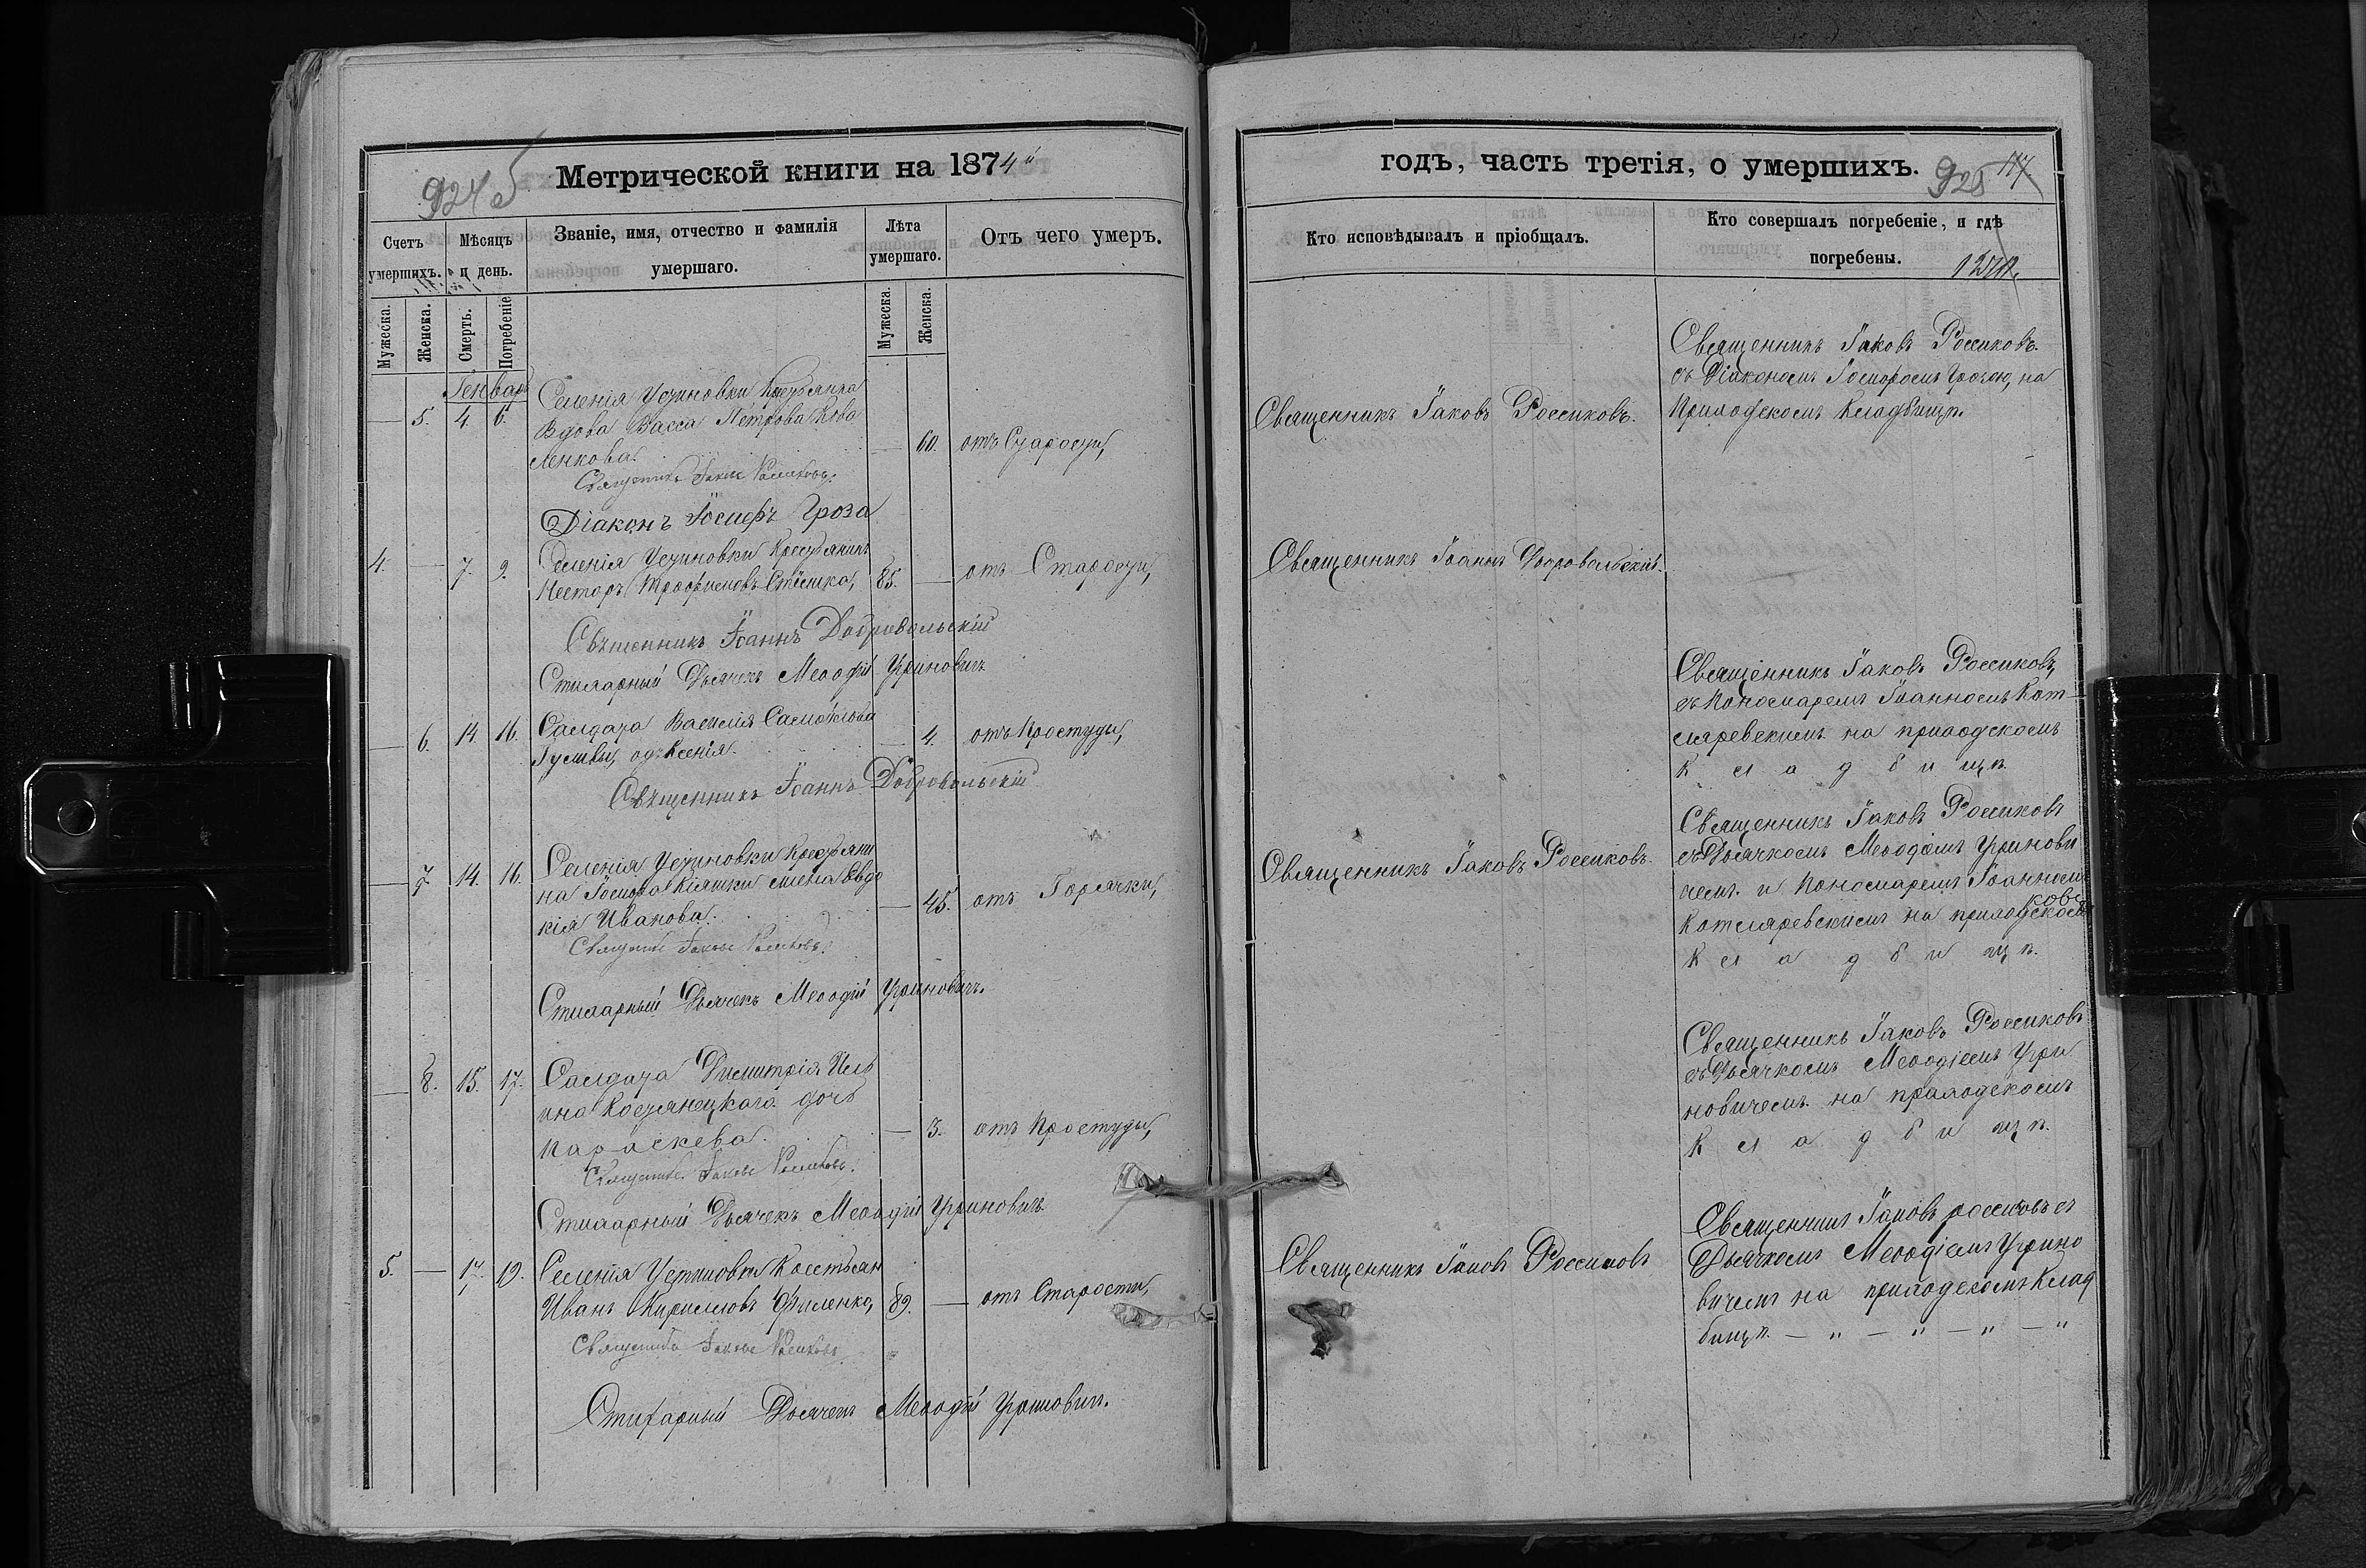 Метрической книги на 1874й
924
Счетъ умершихъ.
Мѣсяцъ и день.
Званіе, имя, отчество и фамилія умершаго.
Лѣта умершаго.
Отъ чего умеръ.
Мужеска.
Женска.
Смерть.
Погребеніе
Мужеска.
Женска.
Генварь
— 5. 4. 6.
Селенія Устиновки Крестьянка
Вдова Васса Петрова Кова
ленкова.
— 60. отъ Старости,
Священникъ Іаковъ Россиковъ.
Діаконъ Іосифъ Гроза
4. — 7. 9.
Селенія Устиновки Крестьянинъ
Несторъ Трофимовъ
85. — отъ Старости,
Священникъ Іоаннъ Добровольскій
Стихарный Дьячекъ Меѳодій Уриновичъ
— 6. 14. 16.
Салдата Василія Самойлова
Гуливы, дочь Ксенія.
— 4. отъ Простуды,
Священникъ Іоаннъ Добровольскій
— 7. 14. 16.
Селенія Устиновки Крестьяни
на Іосифа жена Евдо
кія Иванова.
— 45. отъ Горячки,
Священникъ Іаковъ Россиковъ.
Стихарный Дьячекъ Меѳодій Уриновичъ.
— 8. 15. 17.
Салдата Димитрія Иль
ина дочь
Параскева.
— 3. отъ Простуды,
Священникъ Іаковъ Россиковъ.
Стихарный Дьячекъ Меѳодій Уриновичъ
5. — 17. 19.
Селенія Устиновки Крестьян
Иванъ Кирилловъ Филенко,
89. — отъ Старости,
Священникъ Іаковъ Россиковъ
Стихарный Дьячекъ Меѳодій Уриновичъ.
годъ, часть третія, о умершихъ.
925 117.
Кто исповѣдывалъ и пріобщалъ.
Кто совершалъ погребеніе, и гдѣ
погребены.
Священникъ Іаковъ Россиковъ.
Священникъ Іаковъ Россиковъ.
съ Діакономъ Іосифомъ Грозою, на
Приходскомъ Кладбищѣ.
Священникъ Іоаннъ Добровольскій.
Священникъ Іаковъ Россиковъ,
съ Пономаремъ Іоанномъ Кот-
ляревскимъ на приходскомъ
Кладбищѣ.
Священникъ Іаковъ Россиковъ.
Священникъ Іаковъ Россиковъ
съ Дьячкомъ Меѳодіемъ Уринови
чемъ и Пономаремъ Іоанномъ
Котляревскимъ на приходскомъ
Кладбищѣ.
Священникъ Іаковъ Россиковъ
съ Дьячкомъ Меѳодіемъ Ури
новичемъ на приходскомъ
Кладбищѣ.
Священникъ Іаковъ Россиковъ
Священникъ Іаковъ россиковъ съ
Дьячкомъ Меѳодіемъ Урино
вичемъ на приходскомъ Клад
бищѣ. — " — " — " — "